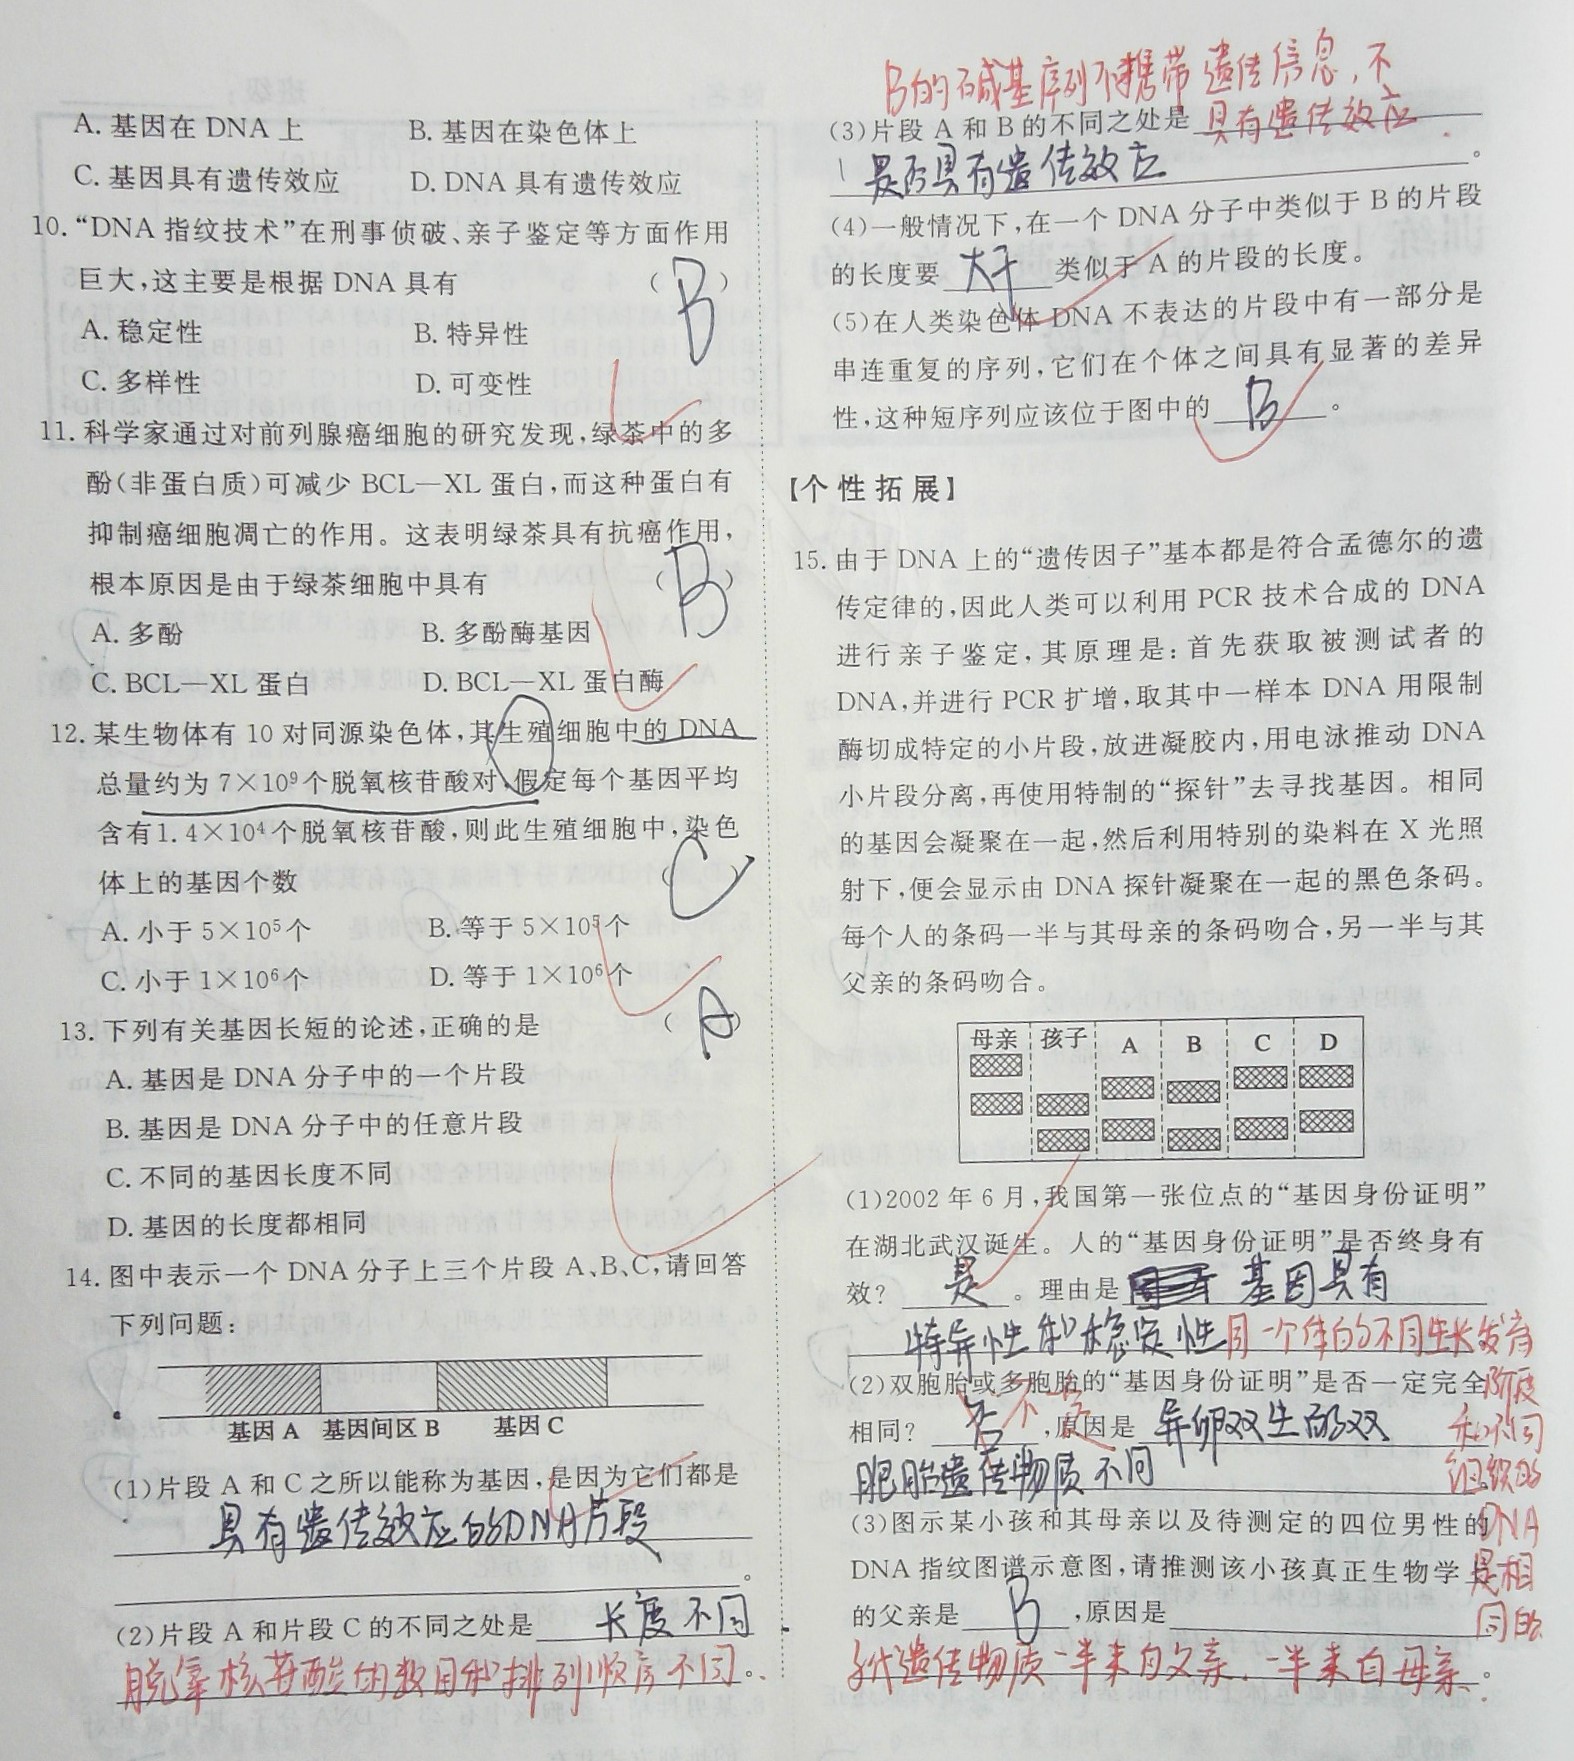 A. 基因在 DNA 上 B. 基因在染色体上
C. 基因具有遗传效应 D. DNA 具有遗传效应
10. “DNA 指纹技术”在刑事侦破、亲子鉴定等方面作用
巨大,这主要是根据 DNA 具有 ( B )
A. 稳定性 B. 特异性
C. 多样性 D. 可变性
11. 科学家通过对前列腺癌细胞的研究发现,绿茶中的多
酚(非蛋白质)可减少 BCL—XL 蛋白,而这种蛋白有
抑制癌细胞凋亡的作用。这表明绿茶具有抗癌作用,
根本原因是由于绿茶细胞中具有 ( B )
A. 多酚 B. 多酚酶基因
C. BCL—XL 蛋白 D. BCL—XL 蛋白酶
12. 某生物体有 10 对同源染色体,其生殖细胞中的 DNA
总量约为 7×10⁹个脱氧核苷酸对,假定每个基因平均
含有1.4×10⁴个脱氧核苷酸,则此生殖细胞中,染色
体上的基因个数 ( C )
A. 小于 5×10⁵个 B. 等于 5×10⁵个
C. 小于 1×10⁶个 D. 等于 1×10⁶个
13. 下列有关基因长短的论述,正确的是 ( A )
A. 基因是 DNA 分子中的一个片段
B. 基因是 DNA 分子中的任意片段
C. 不同的基因长度不同
D. 基因的长度都相同
14. 图中表示一个 DNA 分子上三个片段 A、B、C,请回答
下列问题:
基因 A 基因间区 B 基因 C
(1)片段 A 和 C 之所以能称为基因,是因为它们都是
具有遗传效应的DNA片段
。
(2)片段 A 和片段 C 的不同之处是 长度不同
脱氧核苷酸的数目和排列顺序不同。
B的碱基序列不携带遗传信息,不
(3)片段 A 和 B 的不同之处是 具有遗传效应.
是否具有遗传效应 。
(4)一般情况下,在一个 DNA 分子中类似于 B 的片段
的长度要 大于 类似于 A 的片段的长度。
(5)在人类染色体 DNA 不表达的片段中有一部分是
串连重复的序列,它们在个体之间具有显著的差异
性,这种短序列应该位于图中的 B 。
【个性拓展】
15. 由于 DNA 上的“遗传因子”基本都是符合孟德尔的遗
传定律的,因此人类可以利用 PCR 技术合成的 DNA
进行亲子鉴定,其原理是:首先获取被测试者的
DNA,并进行 PCR 扩增,取其中一样本 DNA 用限制
酶切成特定的小片段,放进凝胶内,用电泳推动 DNA
小片段分离,再使用特制的“探针”去寻找基因。相同
的基因会凝聚在一起,然后利用特别的染料在 X 光照
射下,便会显示由 DNA 探针凝聚在一起的黑色条码。
每个人的条码一半与其母亲的条码吻合,另一半与其
父亲的条码吻合。
母亲 孩子 A B C D
(1)2002 年 6 月,我国第一张位点的“基因身份证明”
在湖北武汉诞生。人的“基因身份证明”是否终身有
效? 是 。理由是 基因具有
特异性和稳定性 同一个体的不同生长发育
阶段
和不同
组织的
DNA
是相
同的
(2)双胞胎或多胞胎的“基因身份证明”是否一定完全
相同? 否 不一定 ,原因是 异卵双生的双
胞胎遗传物质不同
(3)图示某小孩和其母亲以及待测定的四位男性的
DNA 指纹图谱示意图,请推测该小孩真正生物学上
的父亲是 B ,原因是
子代遗传物质一半来自父亲、一半来自母亲。